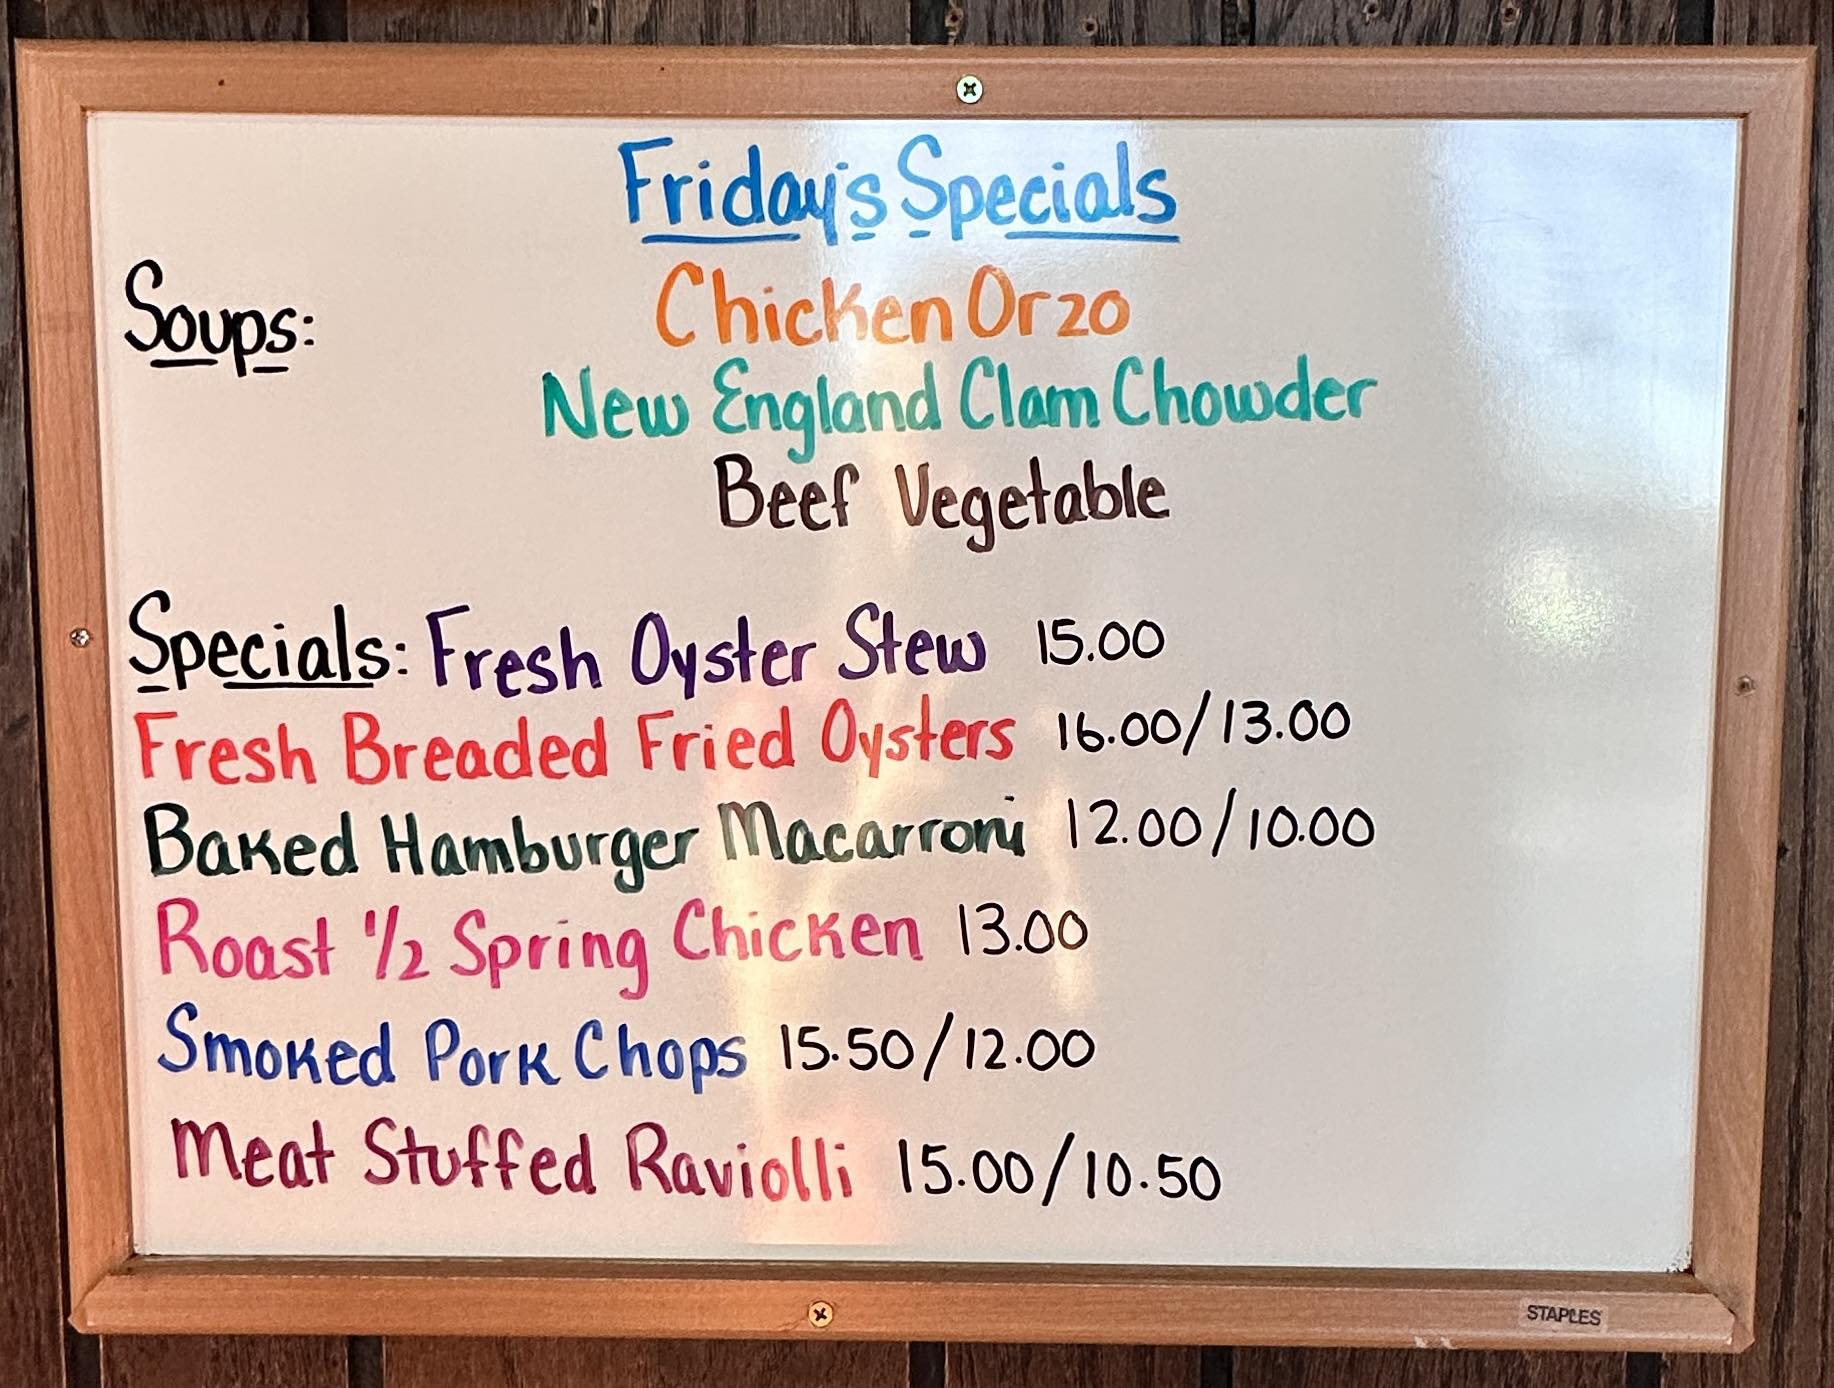 Friday's Specials
Soups: Chicken Orzo
New England Clam Chowder
Beef Vegetable
Specials: Fresh Oyster Stew 15.00
Fresh Breaded Fried Oysters 16.00/13.00
Baked Hamburger Macarroni 12.00/10.00
Roast 1/2 Spring Chicken 13.00
Smoked Pork Chops 15.50/12.00
Meat Stuffed Raviolli 15.00/10.50
STAPLES